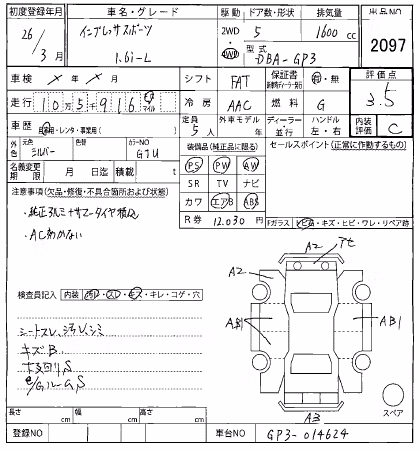 初度登録年月 車名・グレード 駆動 ドア数・形状 排気量 出品NO
26/3月 インプレッサスポーツ 1.6i-L 2WD 4WD 5 1600cc 2097
型式 DBA-GP3
車検 ×年×月 シフト FAT 保証書 有・無 評価点 3.5
走行 10万5千916 km マイル 冷房 AAC 燃料 G
車歴 自家用・レンタ・事業用( ) 定員 5人 外車モデル 年 ディーラー・並行 ハンドル 左・右 内装評価 C
外色 元色 シルバー 色替 カラーNO G1U
装備品(純正品に限る) セールスポイント(正常に作動するもの)
名義変更期限 月 日迄 積載 t
PS PW AW
SR TV ナビ
カワ エアB ABS
R券 12,030円
注意事項(欠品・修復・不具合箇所および状態)
・純正アルミナサマータイヤ積込
・ACわかない
Fガラス トビ石・キズ・ヒビ・ワレ・リペア跡
検査員記入 内装 汚れ・スレ・キズ・キレ・コゲ・穴
シートスレ、汚レシミ
キズB
A2
A2
AB1
A3
スペア
長さ cm 幅 cm 高さ cm
登録NO 車台NO GP3-014624